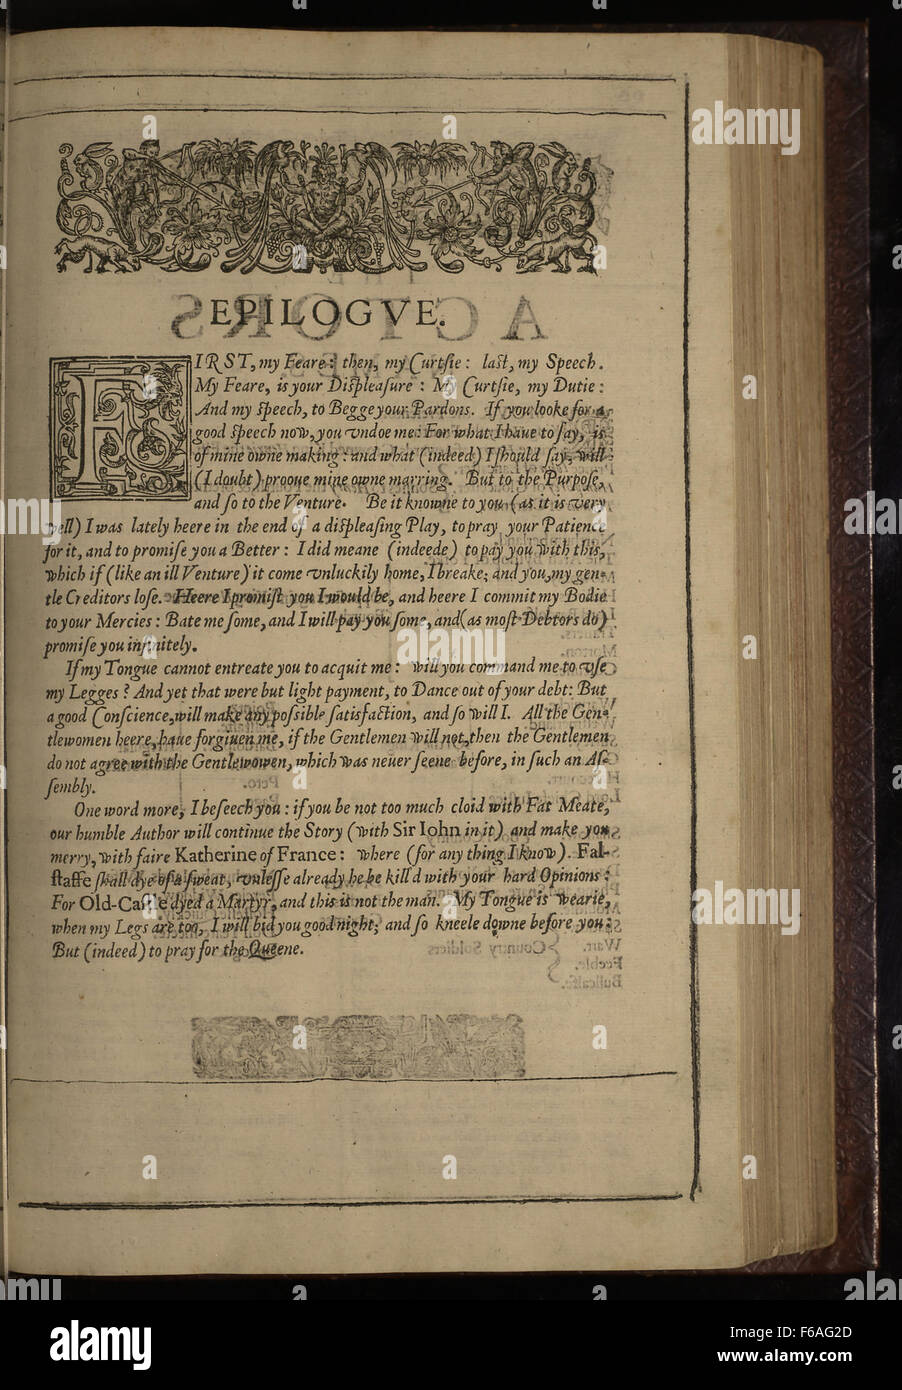 EPILOGVE.
FIRST, my Feare: then, my Curtſie: laſt, my Speech.
My Feare, is your Diſpleaſure: My Curtſie, my Dutie:
And my ſpeech, to Begge your Pardons. If you looke for a
good ſpeech now, you vndoe me: For what I haue to ſay, is
of mine owne making: and what (indeed) I ſhould ſay, will
(I doubt) prooue mine owne marring. But to the Purpoſe,
and ſo to the Venture. Be it knowne to you (as it is very
well) I was lately heere in the end of a diſpleaſing Play, to pray your Patience
for it, and to promiſe you a Better: I did meane (indeede) to pay you with this,
which if (like an ill Venture) it come vnluckily home, I breake; and you, my gen-
tle Creditors loſe. Heere I promiſt you I would be, and heere I commit my Bodie
to your Mercies: Bate me ſome, and I will pay you ſome, and (as moſt Debtors do)
promiſe you infinitely.
If my Tongue cannot entreate you to acquit me: will you command me to vſe
my Legges? And yet that were but light payment, to Dance out of your debt: But
a good Conſcience, will make any poſsible ſatisfaction, and ſo will I. All the Gen-
tlewomen heere, haue forgiuen me, if the Gentlemen will not, then the Gentlemen
do not agree with the Gentlewowen, which was neuer ſeene before, in ſuch an Aſ-
ſembly.
One word more, I beſeech you: if you be not too much cloid with Fat Meate,
our humble Author will continue the Story (with Sir Iohn in it) and make you
merry, with faire Katherine of France: where (for any thing I know) Fal-
ſtaffe ſhall dye of a ſweat, vnleſſe already he be kill'd with your hard Opinions:
For Old-Caſtle dyed a Martyr, and this is not the man. My Tongue is wearie,
when my Legs are too, I will bid you good night; and ſo kneele downe before you:
But (indeed) to pray for the Queene.
alamy stock photo
F6AG2D
www.alamy.com